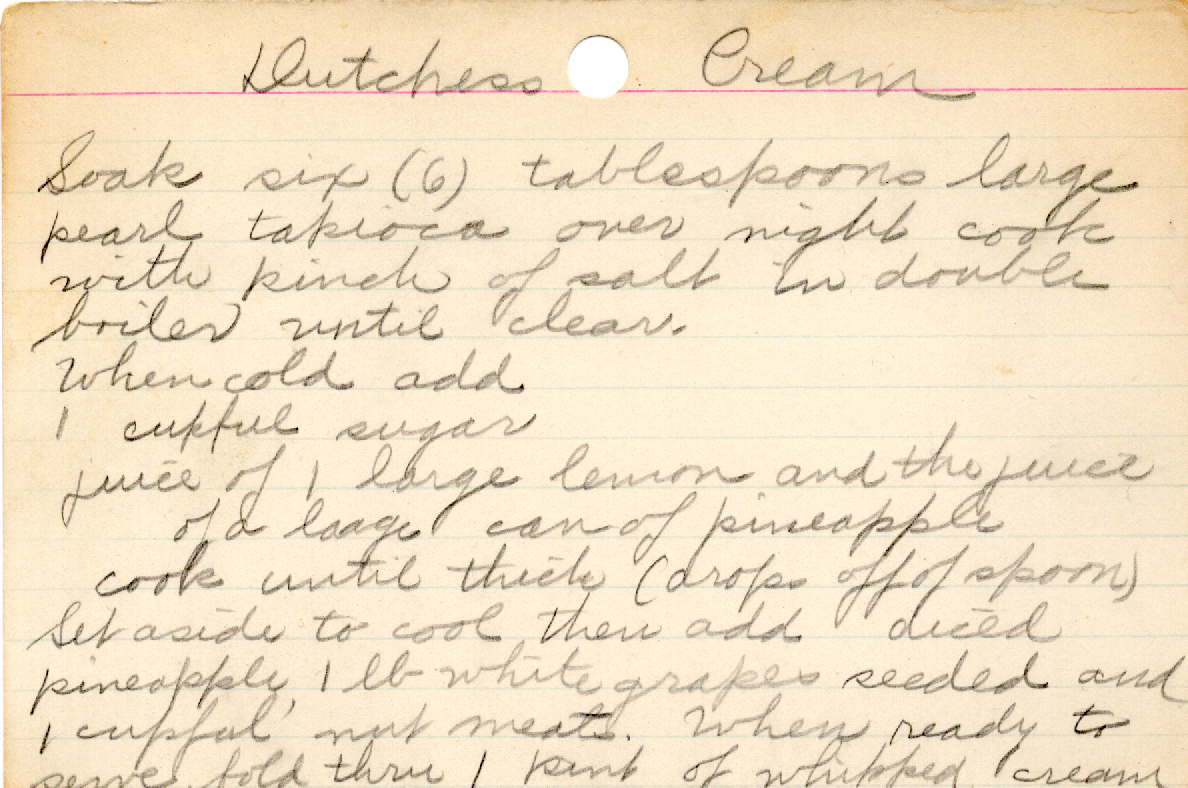 Dutchess Cream
Soak six (6) tablespoons large
pearl tapioca over night cook
with pinch of salt in double
boiler until clear.
When cold add
1 cupful sugar
juice of 1 large lemon and the juice
of a laage can of pineapple
cook until thick (drops off of spoon)
Set aside to cool then add diced
pineapple, 1 lb white grapes seeded and
1 cupful nut meats. When ready to
serve fold thru 1 pint of whipped cream